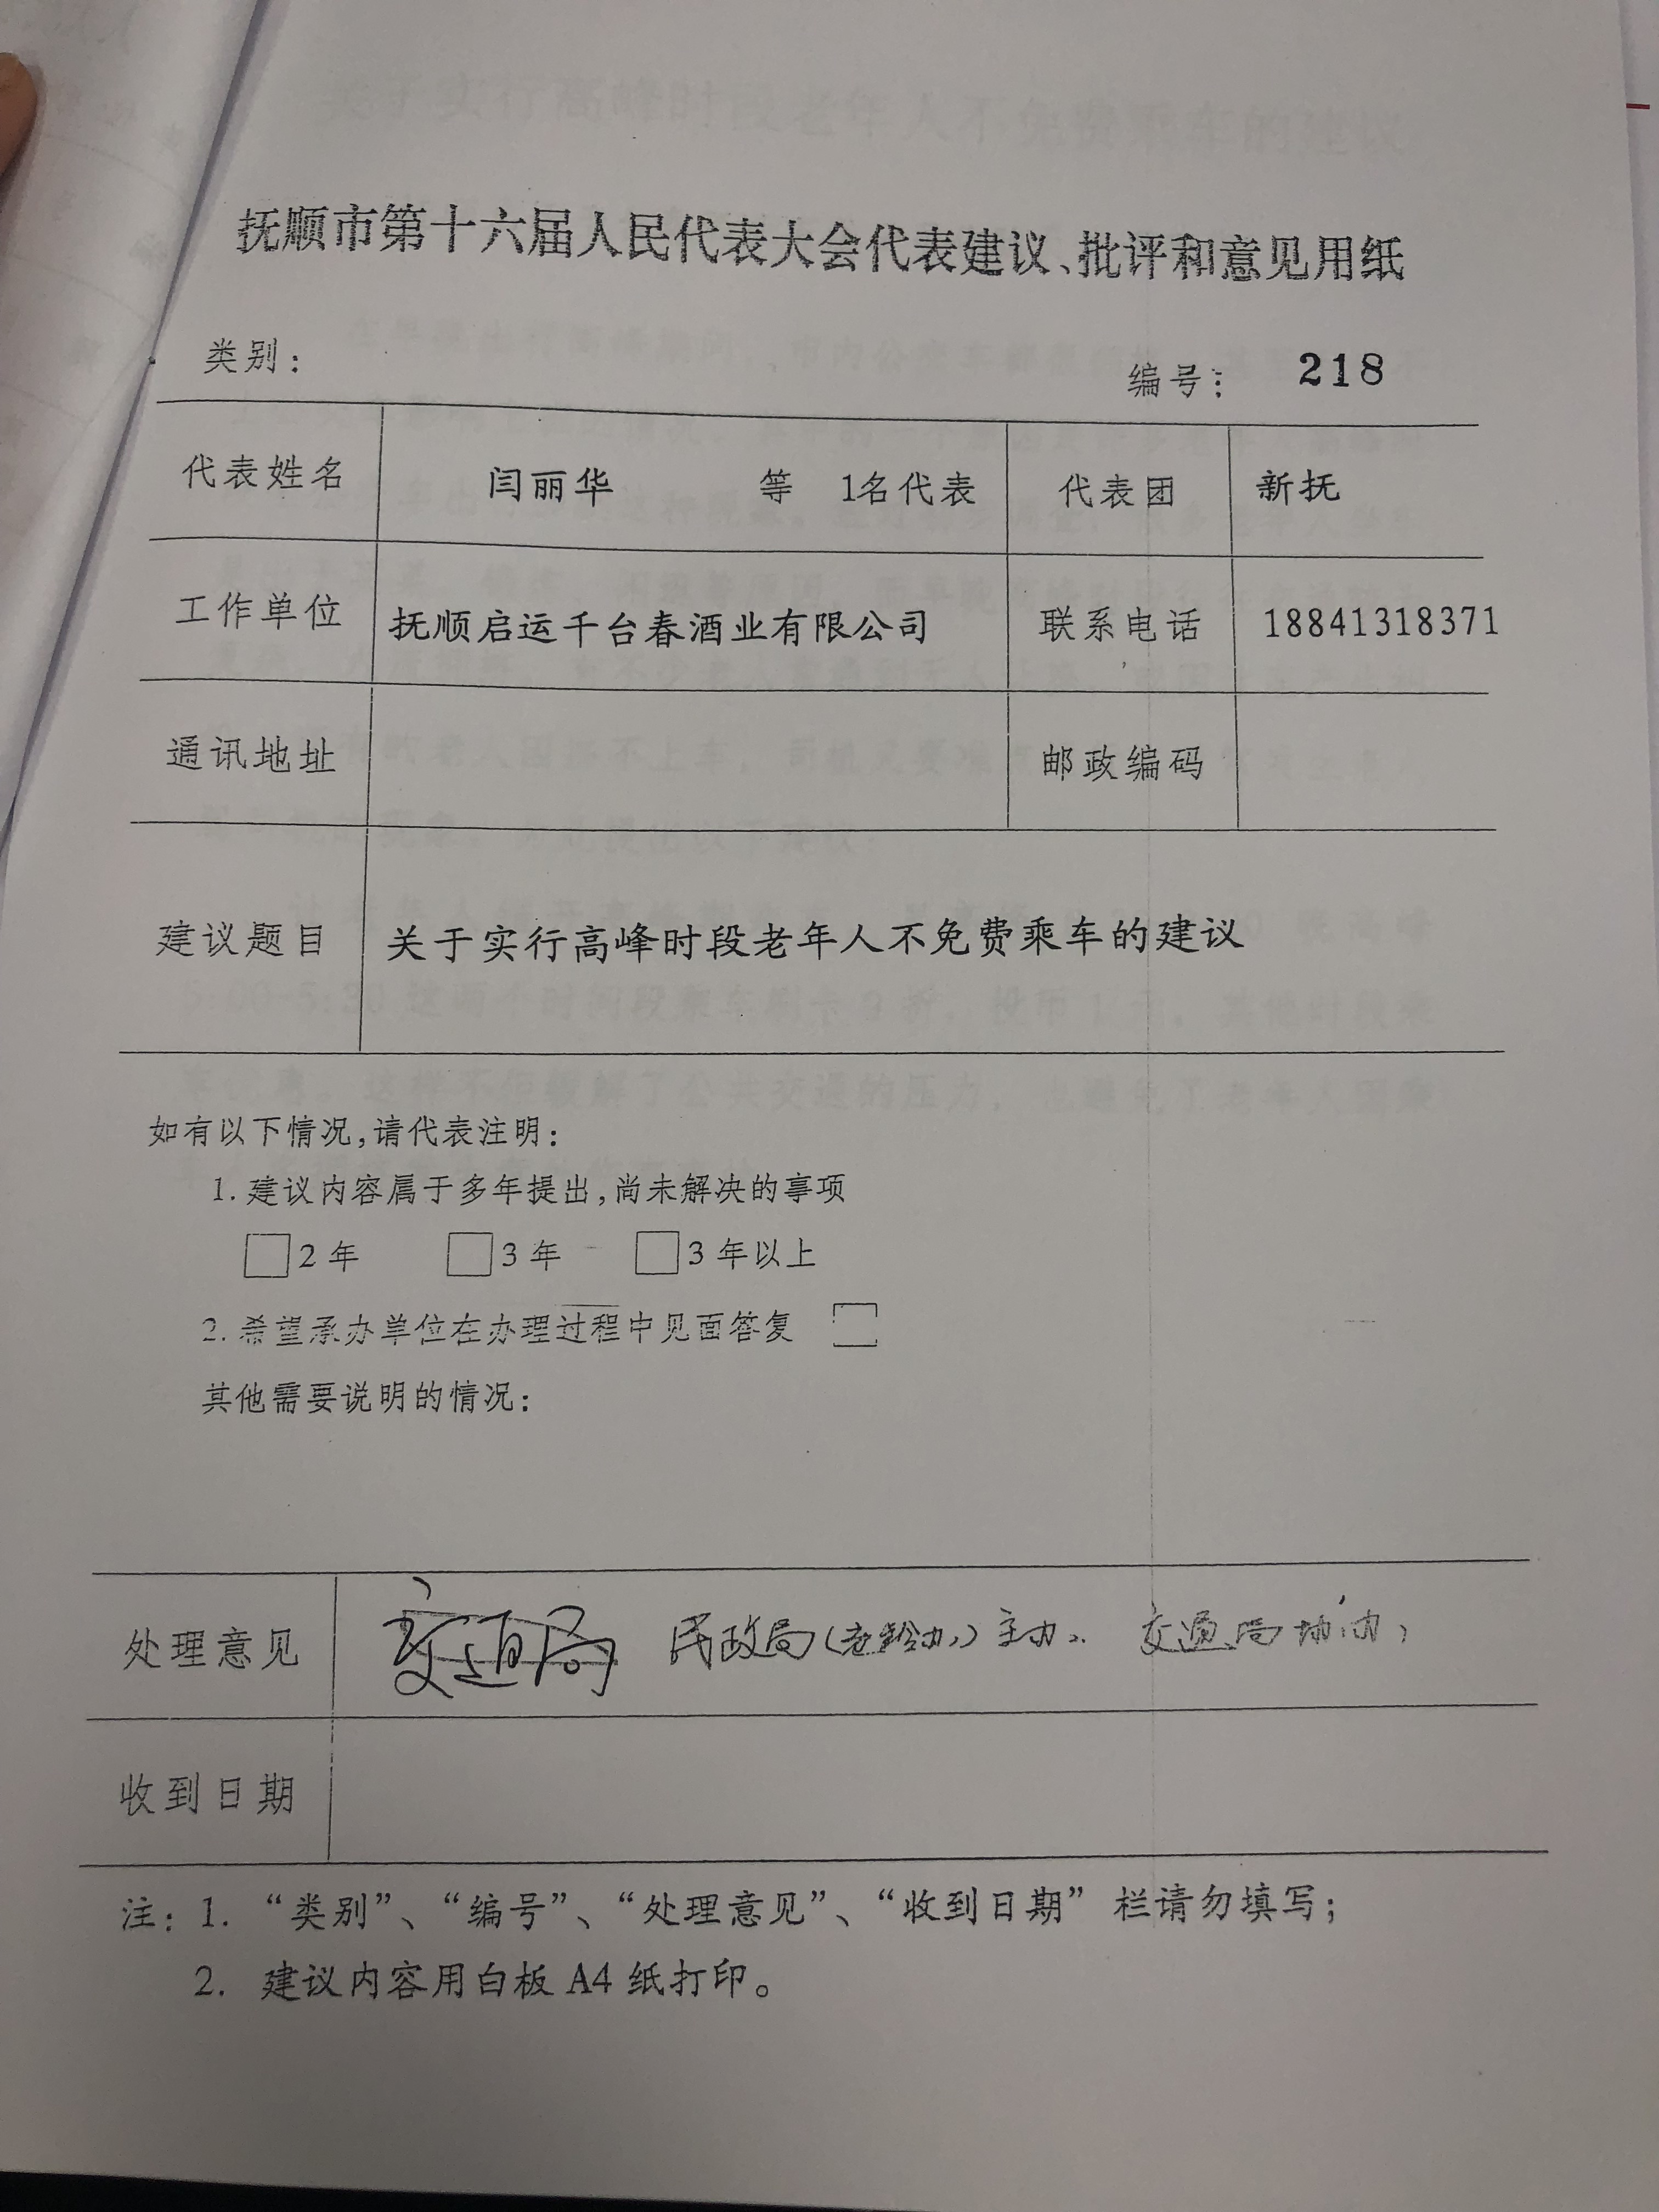 抚顺市第十六届人民代表大会代表建议、批评和意见用纸
类别: 编号: 218
代表姓名 闫丽华 等 1名代表 代表团 新抚
工作单位 抚顺启运千台春酒业有限公司 联系电话 18841318371
通讯地址 邮政编码
建议题目 关于实行高峰时段老年人不免费乘车的建议
如有以下情况,请代表注明:
1. 建议内容属于多年提出,尚未解决的事项
2 年 3 年 3 年以上
2. 希望承办单位在办理过程中见面答复
其他需要说明的情况:
处理意见 交通局 民政局(老龄办)主办、交通局协办,
收到日期
注: 1. “类别”、“编号”、“处理意见”、“收到日期” 栏请勿填写;
2. 建议内容用白板 A4 纸打印。